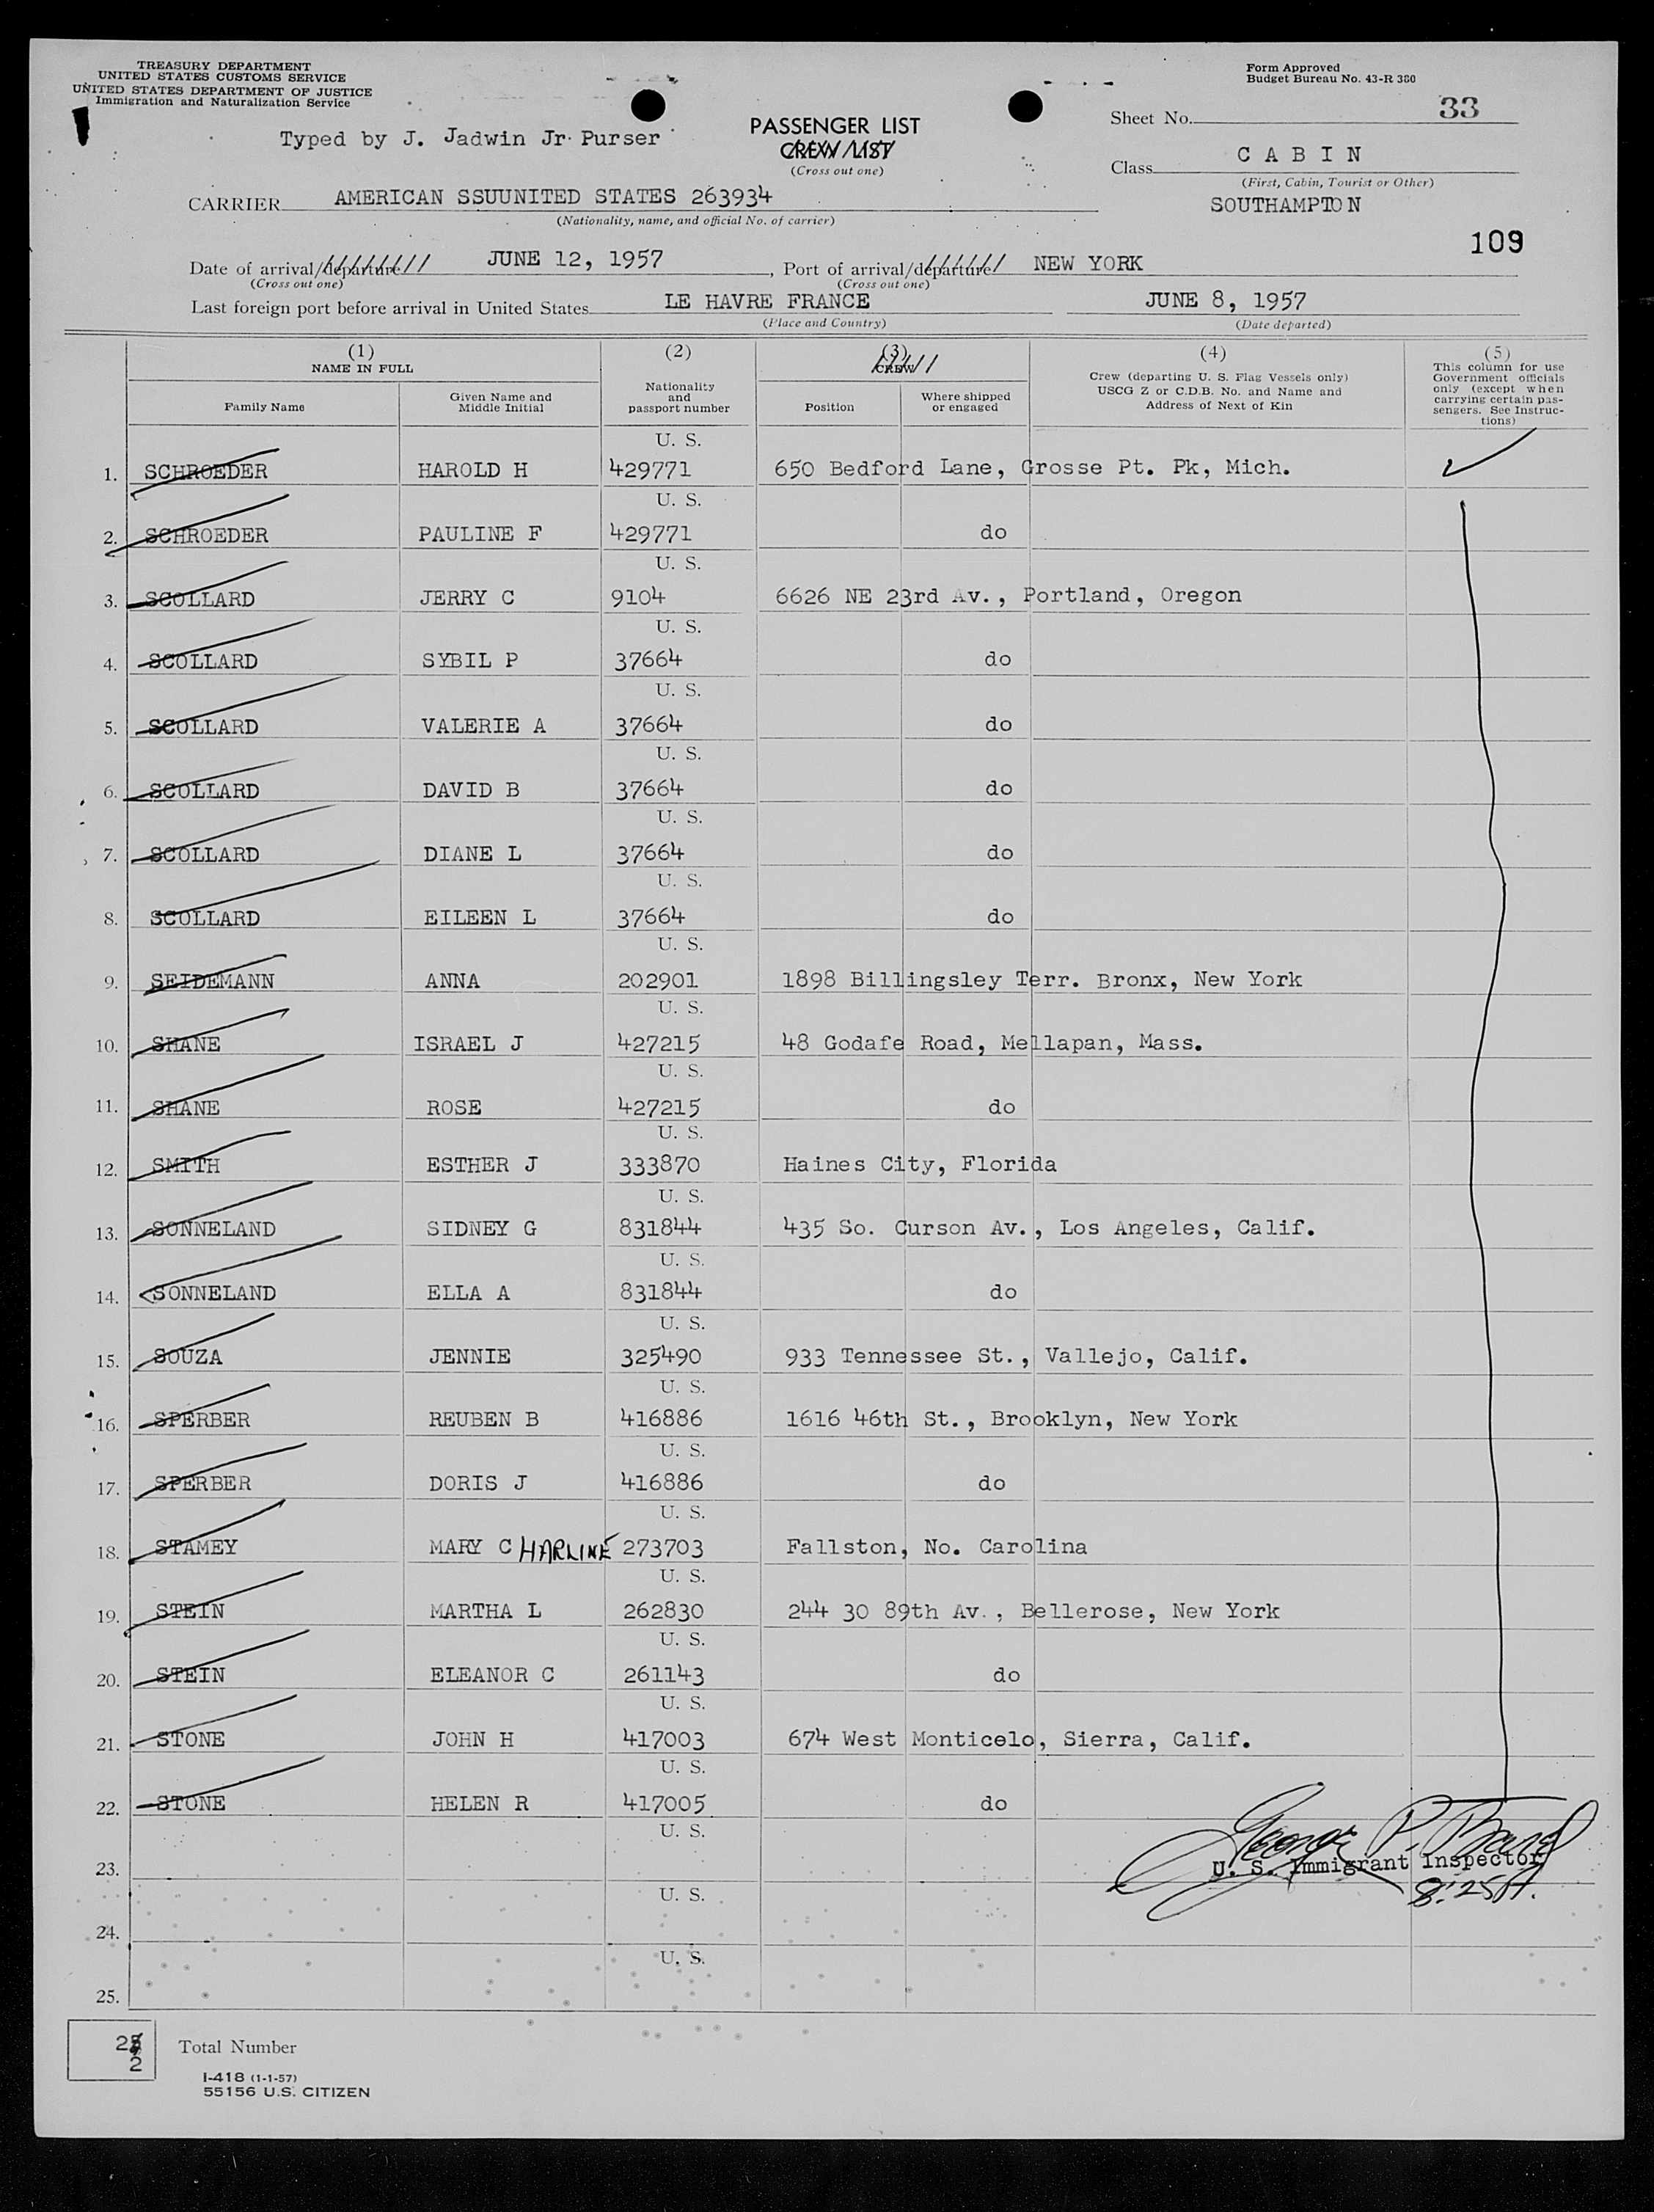 TREASURY DEPARTMENT
UNITED STATES CUSTOMS SERVICE
UNITED STATES DEPARTMENT OF JUSTICE
Immigration and Naturalization Service
Form Approved
Budget Bureau No. 43-R 380
Typed by J. Jadwin Jr. Purser
PASSENGER LIST
CREW LIST
(Cross out one)
Sheet No. 33
Class CABIN
(First, Cabin, Tourist or Other)
CARRIER AMERICAN SSUUNITED STATES 263934
(Nationality, name, and official No. of carrier)
SOUTHAMPTON
109
Date of arrival/departure JUNE 12, 1957, Port of arrival/departure NEW YORK
(Cross out one) (Cross out one)
Last foreign port before arrival in United States LE HAVRE FRANCE JUNE 8, 1957
(Place and Country) (Date departed)
(1) NAME IN FULL
Family Name
Given Name and Middle Initial
(2) Nationality and passport number
(3) CREW
Position
Where shipped or engaged
(4) Crew (departing U. S. Flag Vessels only) USCG Z or C.D.B. No. and Name and Address of Next of Kin
(5) This column for use Government officials only (except when carrying certain passengers. See Instructions)
U. S.
1. SCHROEDER HAROLD H 429771 650 Bedford Lane, Grosse Pt. Pk, Mich.
U. S.
2. SCHROEDER PAULINE F 429771 do
U. S.
3. SCOLLARD JERRY C 9104 6626 NE 23rd Av., Portland, Oregon
U. S.
4. SCOLLARD SYBIL P 37664 do
U. S.
5. SCOLLARD VALERIE A 37664 do
U. S.
6. SCOLLARD DAVID B 37664 do
U. S.
7. SCOLLARD DIANE L 37664 do
U. S.
8. SCOLLARD EILEEN L 37664 do
U. S.
9. SEIDEMANN ANNA 202901 1898 Billingsley Terr. Bronx, New York
U. S.
10. SHANE ISRAEL J 427215 48 Godafe Road, Mellapan, Mass.
U. S.
11. SHANE ROSE 427215 do
U. S.
12. SMITH ESTHER J 333870 Haines City, Florida
U. S.
13. SONNELAND SIDNEY G 831844 435 So. Curson Av., Los Angeles, Calif.
U. S.
14. SONNELAND ELLA A 831844 do
U. S.
15. SOUZA JENNIE 325490 933 Tennessee St., Vallejo, Calif.
U. S.
16. SPERBER REUBEN B 416886 1616 46th St., Brooklyn, New York
U. S.
17. SPERBER DORIS J 416886 do
U. S.
18. STAMEY MARY CHARLINE 273703 Fallston, No. Carolina
U. S.
19. STEIN MARTHA L 262830 244 30 89th Av., Bellerose, New York
U. S.
20. STEIN ELEANOR C 261143 do
U. S.
21. STONE JOHN H 417003 674 West Monticelo, Sierra, Calif.
U. S.
22. STONE HELEN R 417005 do
U. S.
George P.
23. U. S. Immigrant Inspector
U. S.
24.
U. S.
25.
2 2 Total Number
I-418 (1-1-57)
55156 U.S. CITIZEN